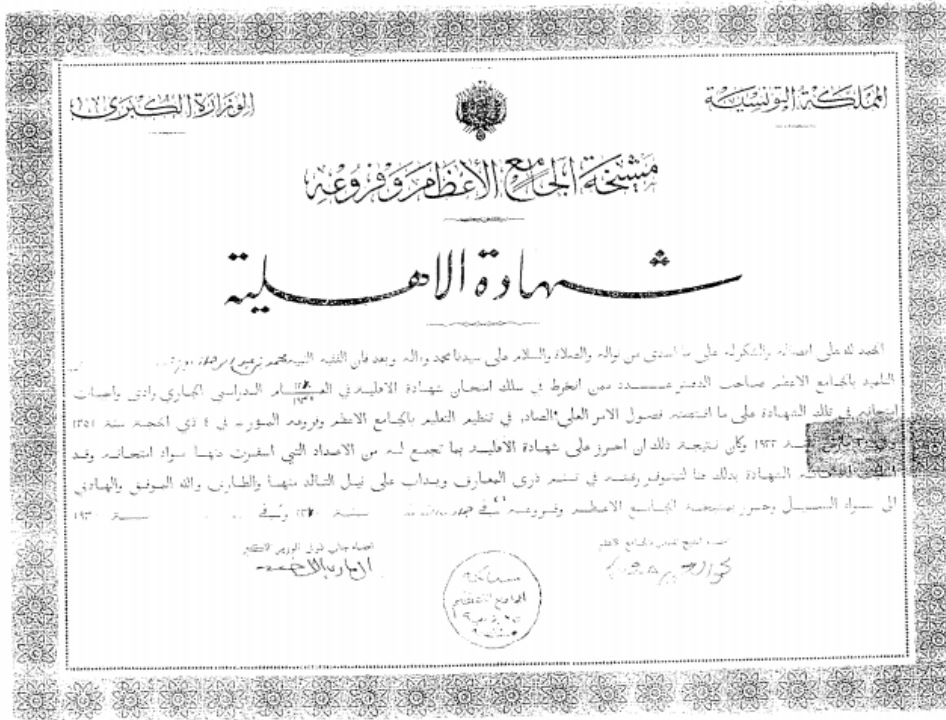 المملكة التونسية
الوزارة الكبرى
مشيخة الجامع الأعظم وفروعه
شهادة الاهلية
الحمد لله على افضاله والشكر له على ما اسدى من نواله والصلاة والسلام على سيدنا محمد وءاله وبعد فان الفقيه النبيه
التلميذ بالجامع الاعظم صاحب الدفتر عــدد ممن انخرط في سلك امتحان شهادة الاهلية في العــام الدراسي الجاري وادى واجبات
امتحانه في تلك الشهادة على ما اقتضته فصول الامر العلي الصادر في تنظيم التعليم بالجامع الاعظم وفروعه المؤرخ في ٤ ذي الحجة سنة ١٣٥١
سنة ١٩٣٣ وكان نتيجة ذلك ان احرز على شهادة الاهلية بما تجمع له من الاعداد التي اسفرت عنها مواد امتحانه وقد
الشهادة بذلك هنا لتتوفر رغبته في تسنم ذرى المعارف ويداب على نيل التالد منها والطارف والله الموفق والهادي
الى سواء السبيل وحرر بمشيخة الجامع الاعظم وفروعه في سنة وفي سنة ١٩٣
امضاء الشيخ
امضاء جناب الوزير الاكبر
مشيخة
الجامع الاعظم